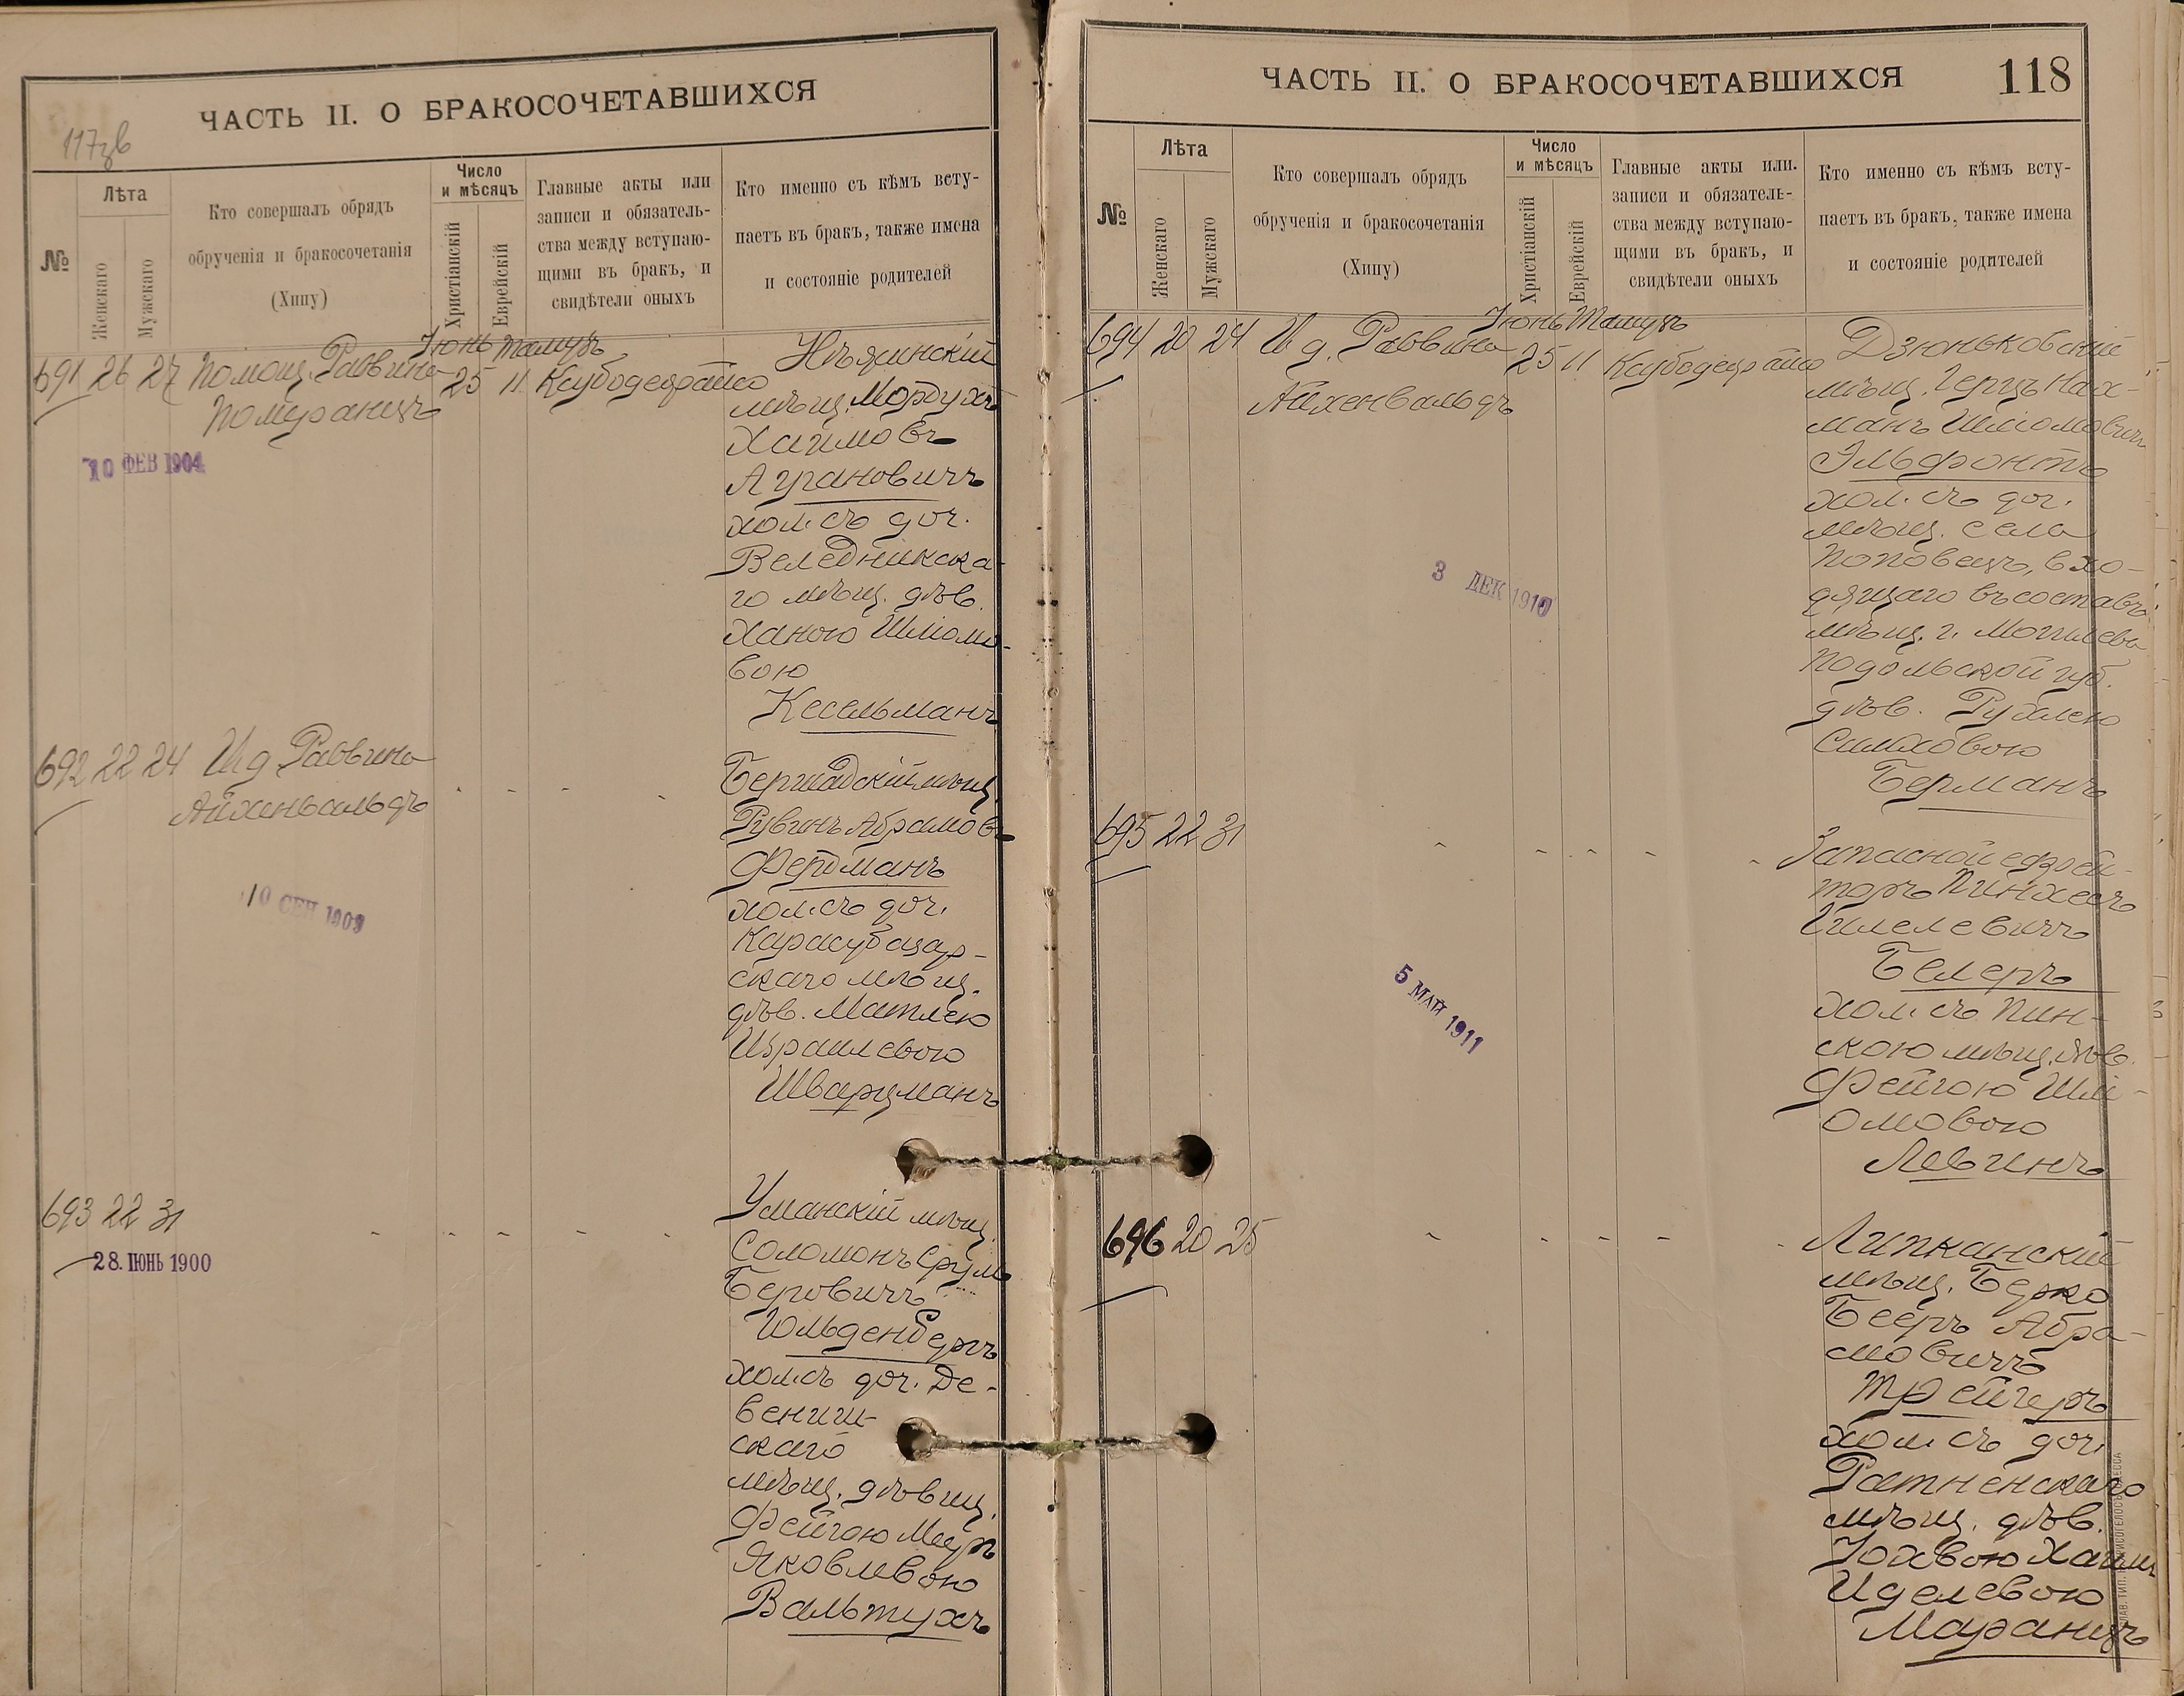 ЧАСТЬ II. О БРАКОСОЧЕТАВШИХСЯ
117об
№
Лѣта
Женскаго
Мужскаго
Кто совершалъ обрядъ
обрученія и бракосочетанія
(Хипу)
Число
и мѣсяцъ
Христіанскій
Еврейскій
Главные акты или
записи и обязатель-
ства между вступаю-
щими въ бракъ, и
свидѣтели оныхъ
Кто именно съ кѣмъ всту-
паетъ въ бракъ, также имена
и состояніе родителей
Іюнь Тамузъ
691 26 27 Помощ. Раввина 25 11
Померанцъ
10 ФЕВ 1904
мѣщ. Мордухъ
Хаимовъ
Аграновичъ
хол. съ доч.
Веледникска-
го мѣщ. дѣв.
Ханою Шліомо-
вою
Кесельманъ
692 22 24 И д. Раввина
Айхенвальдъ
10 СЕН 1909
Бершадскій мѣщ.
Рувинъ Абрамовъ
Фердманъ
хол. съ доч.
Карасубазар-
скаго мѣщ.
дѣв. Матлею
Израилевою
Шварцманъ
693 22 31
28. ІЮНЬ 1900
Уманскій мѣщ.
Соломонъ Сруль
Беровичъ
Гольденбергъ
хол. съ доч. Де-
вениш-
скаго
мѣщ. дѣвиц.
Фейгою
Яковлевою
Вальтухъ
ЧАСТЬ II. О БРАКОСОЧЕТАВШИХСЯ 118
№
Лѣта
Женскаго
Мужскаго
Кто совершалъ обрядъ
обрученія и бракосочетанія
(Хипу)
Число
и мѣсяцъ
Христіанскій
Еврейскій
Главные акты или.
записи и обязатель-
ства между вступаю-
щими въ бракъ, и
свидѣтели оныхъ
Кто именно съ кѣмъ всту-
паетъ въ бракъ, также имена
и состояніе родителей
Іюнь Тамузъ
694 20 24 И д. Раввина 25 11
Айхенвальдъ
3 ДЕК 1910
Дзюньковскій
мѣщ. Герцъ Нах-
манъ Шліомовичъ
Эльфонтъ
хол. съ доч.
мѣщ. села
Поповецъ, вхо-
дящаго въ составъ
мѣщ. г. Могилева
Подольской губ.
дѣв. Рухлею
Симховою
Берманъ
695 22 31
5 МАЙ 1911
Запасной ефрей-
торъ Пинхесъ
Гилелевичъ
Белеръ
хол. съ Пин-
скою мѣщ. дѣв.
Фейгою Шлі-
омовою
Левинъ
696 20 25
Липканскій
мѣщ. Берко
Бееръ Абра-
мовичъ
Трейгеръ
хол. съ доч.
Ратненскаго
мѣщ. дѣв.
Иделевою
Маранцъ